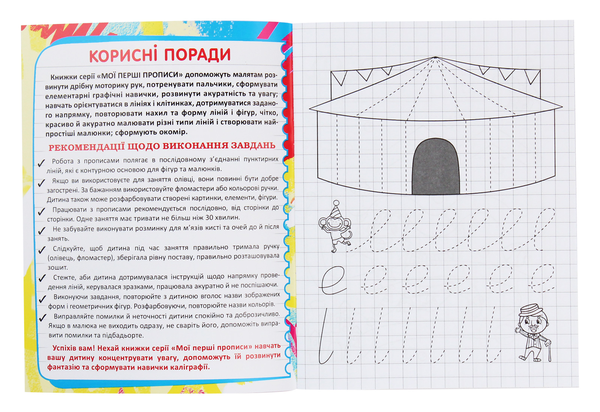 КОРИСНІ ПОРАДИ
Книжки серії «МОЇ ПЕРШІ ПРОПИСИ» допоможуть малятам роз-
винути дрібну моторику рук, потренувати пальчики, сформувати
елементарні графічні навички, розвинути акуратність та увагу;
навчать орієнтуватися в лініях і клітинках, дотримуватися задано-
го напрямку, повторювати нахил та форму ліній і фігур, чітко,
красиво й акуратно малювати різні типи ліній і створювати най-
простіші малюнки; сформують окомір.
РЕКОМЕНДАЦІЇ ЩОДО ВИКОНАННЯ ЗАВДАНЬ
Робота з прописами полягає в послідовному з'єднанні пунктирних
ліній, які є контурною основою для фігур та малюнків.
Якщо ви використовуєте для заняття олівці, вони повинні бути добре
загострені. За бажанням використовуйте фломастери або кольорові ручки.
Дитина також може розфарбовувати створені картинки, елементи, фігури.
Працювати з прописами рекомендується послідовно, від сторінки до
сторінки. Одне заняття має тривати не більш ніж 30 хвилин.
Не забувайте виконувати розминку для м'язів кисті та очей до й після
занять.
Слідкуйте, щоб дитина під час заняття правильно тримала ручку
(олівець, фломастер), зберігала рівну поставу, правильно розташовувала
зошит.
Стежте, аби дитина дотримувалася інструкцій щодо напрямку прове-
дення ліній, керувалася зразками, працювала акуратно й не поспішаючи.
Виконуючи завдання, повторюйте з дитиною вголос назви зображених
форм і геометричних фігур. Розфарбовуючи, повторюйте назви кольорів.
Виправляйте помилки й неточності дитини спокійно та доброзичливо.
Якщо в малюка не виходить одразу, не сваріть його, допоможіть випра-
вити помилки та підбадьорте.
Успіхів вам! Нехай книжки серії «Мої перші прописи» навчать
вашу дитину концентрувати увагу, допоможуть їй розвинути
фантазію та сформувати навички каліграфії.